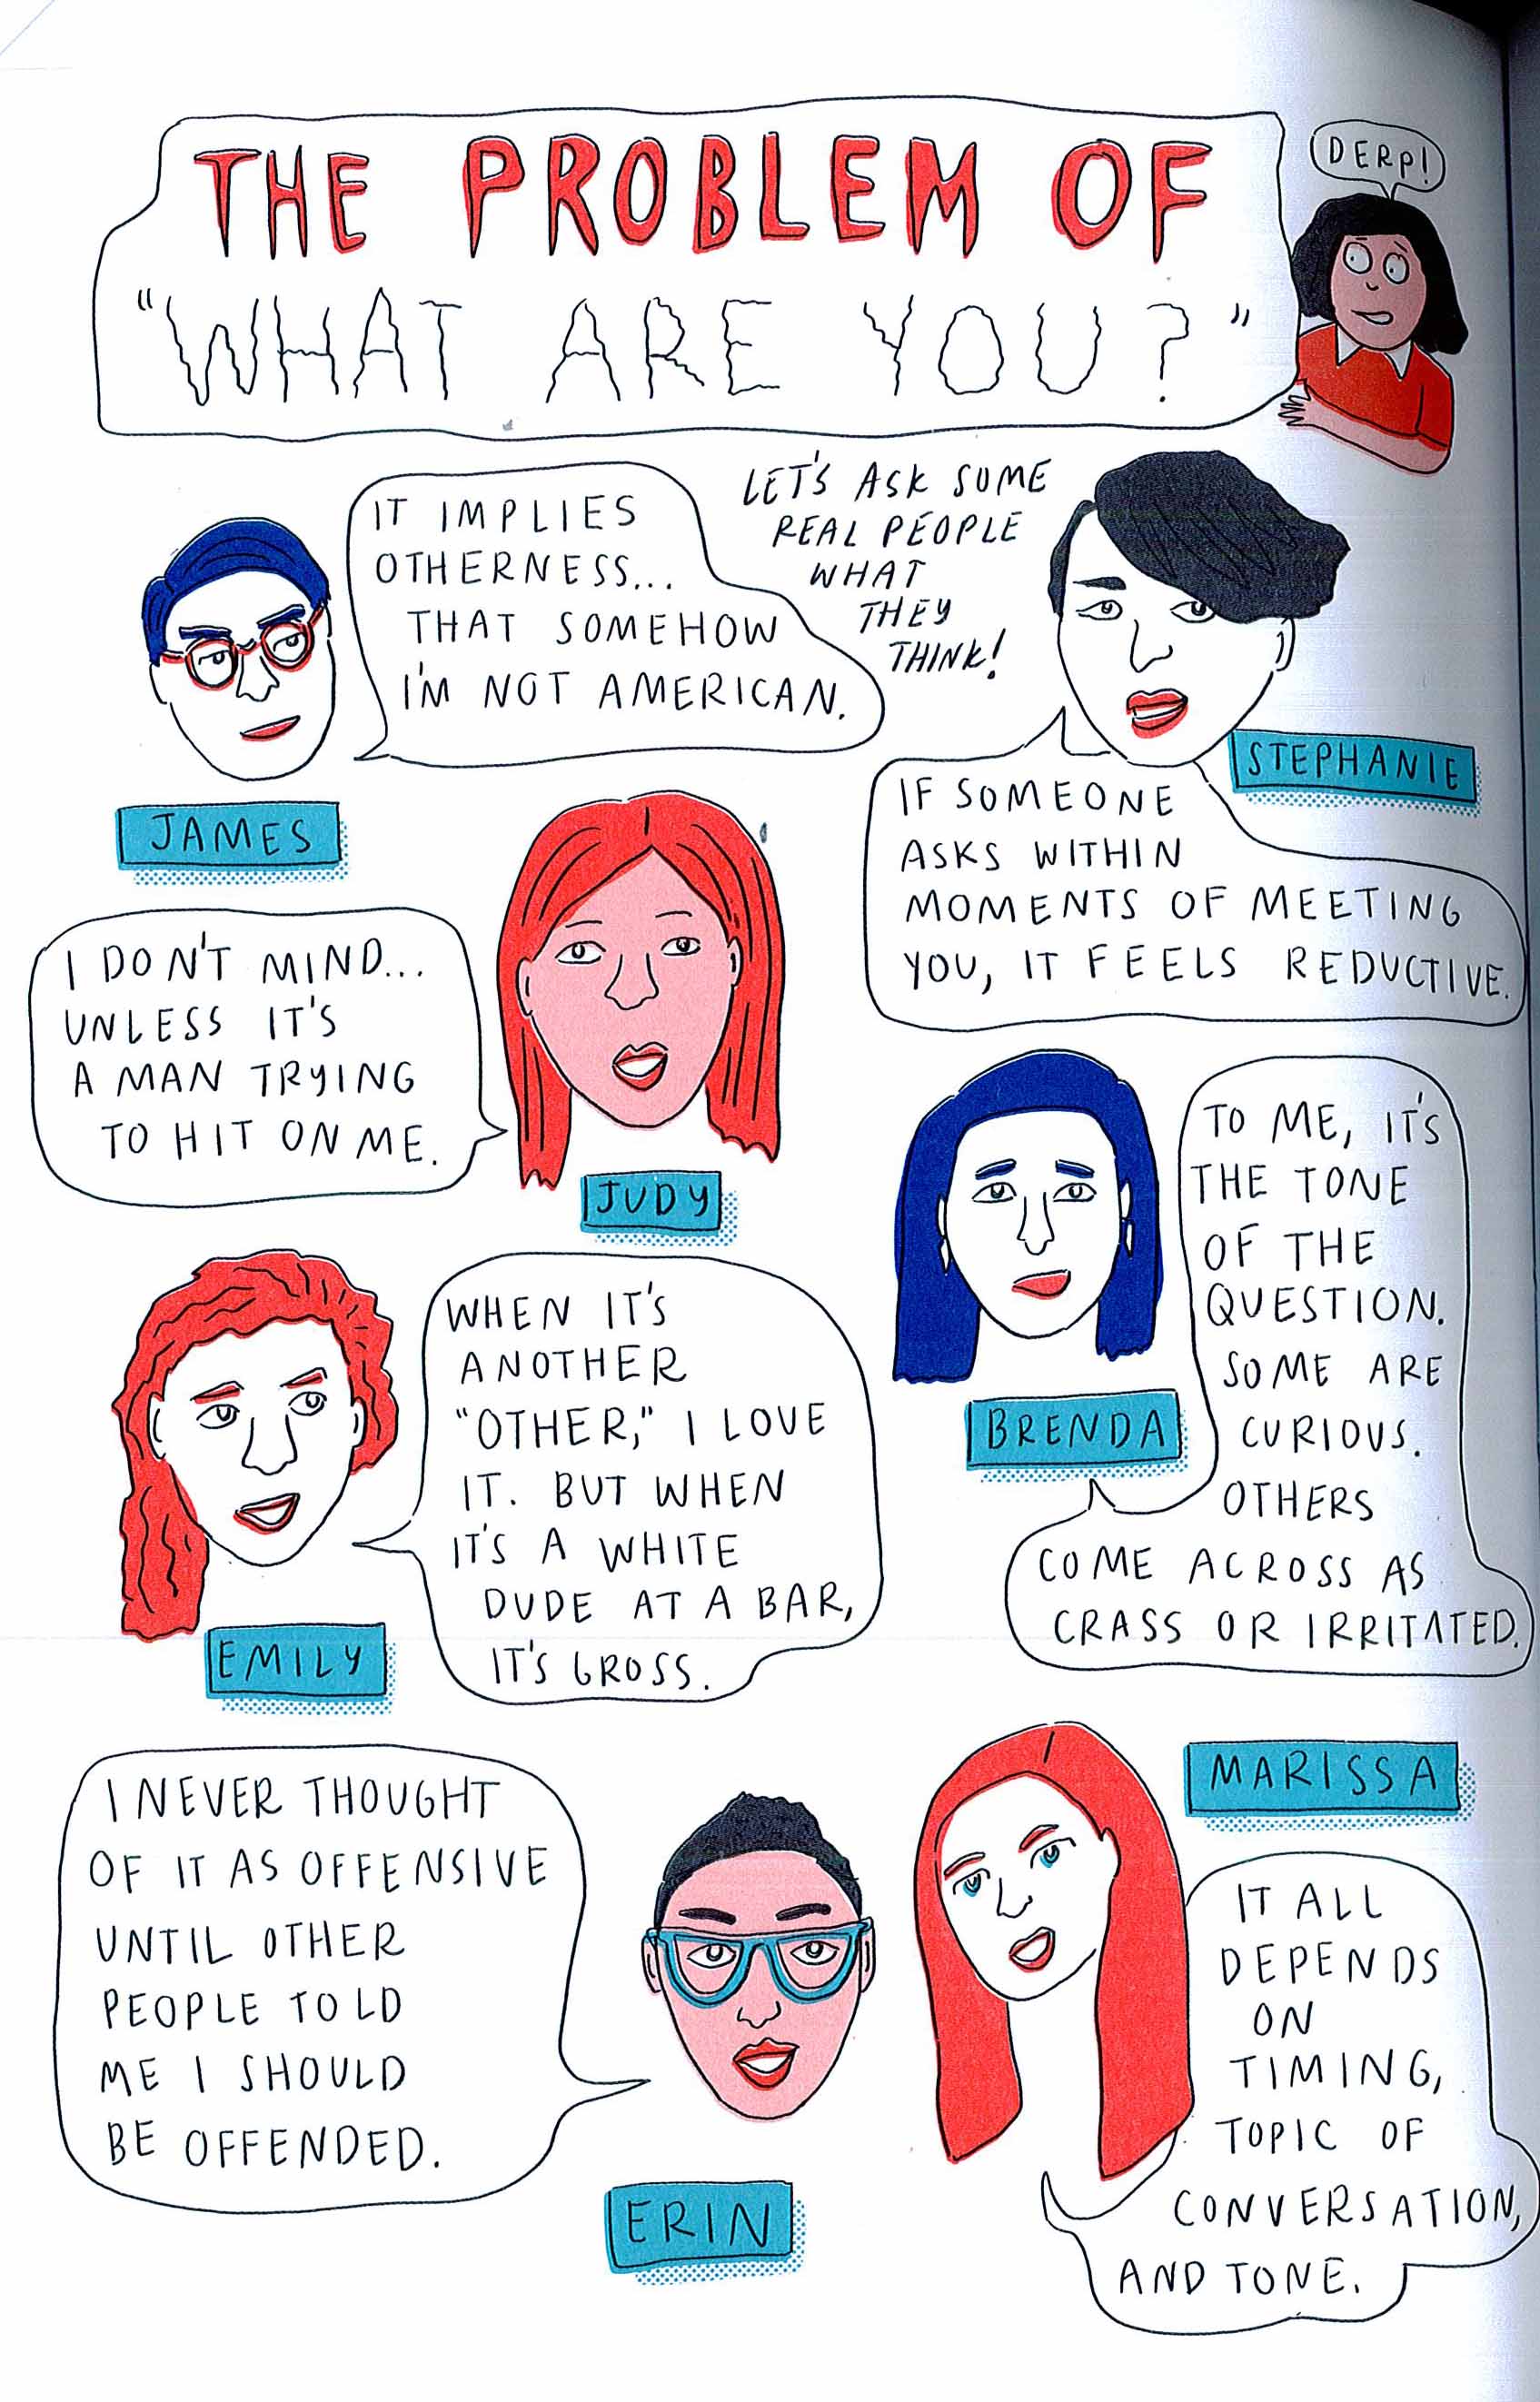 THE PROBLEM OF
"WHAT ARE YOU?"
DERP!
LET'S ASK SOME
REAL PEOPLE
WHAT
THEY
THINK!
IT IMPLIES
OTHERNESS...
THAT SOMEHOW
I'M NOT AMERICAN.
JAMES
STEPHANIE
IF SOMEONE
ASKS WITHIN
MOMENTS OF MEETING
YOU, IT FEELS REDUCTIVE.
I DON'T MIND...
UNLESS IT'S
A MAN TRYING
TO HIT ON ME.
JUDY
TO ME, IT'S
THE TONE
OF THE
QUESTION.
SOME ARE
CURIOUS.
OTHERS
COME ACROSS AS
CRASS OR IRRITATED.
BRENDA
WHEN IT'S
ANOTHER
"OTHER," I LOVE
IT. BUT WHEN
IT'S A WHITE
DUDE AT A BAR,
IT'S GROSS.
EMILY
I NEVER THOUGHT
OF IT AS OFFENSIVE
UNTIL OTHER
PEOPLE TOLD
ME I SHOULD
BE OFFENDED.
ERIN
MARISSA
IT ALL
DEPENDS
ON
TIMING,
TOPIC OF
CONVERSATION,
AND TONE.